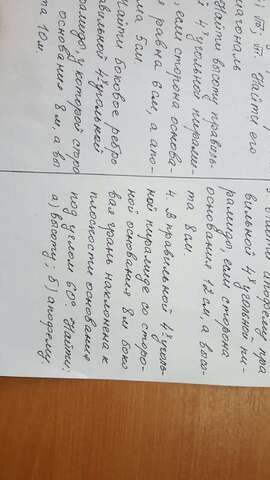 √3; √11. Найти его
диагональ
Найти высоту правиль-
ной 4хугольной пирами-
, если сторона основа-
равна 6см, а апо-
ма 5см.
Найти боковое ребро
авильной 4хугольной
рамиды, у которой сторо
основания 8м, а вы
та 10м
апофему пра
вильной 4хугольной пи-
рамиды, если сторона
основания 12см, а высо-
та 8см
4. В правильной 4хуголь-
ной пирамиде со сторо-
ной основания 8м боко
вая грань наклонена к
плоскости основания
под углом 60°. Найти:
а) высоту; б) апофему